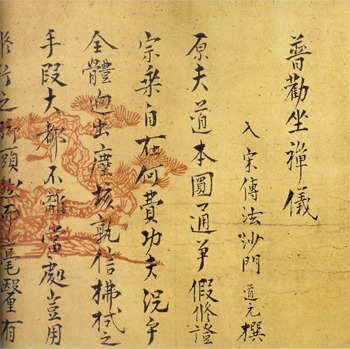 普勸坐禪儀
入宋傳法沙門道元撰
原夫道本圓通爭假修證
宗乘自在何費功夫況乎
全體逈出塵埃孰信拂拭之
手段大都不離當處豈用
修行之脚頭然而毫釐有